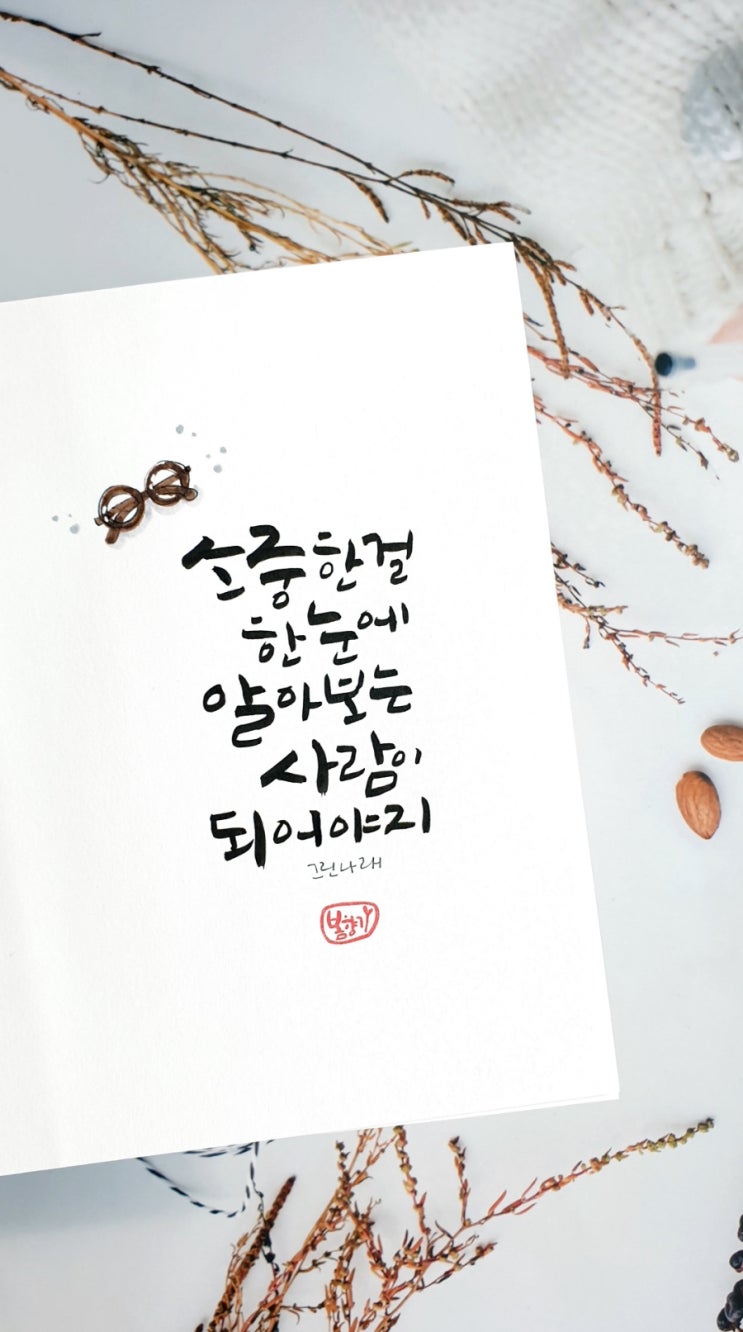 소중한걸
한눈에
알아보는
사람이
되어야지
그린나래
봄향기